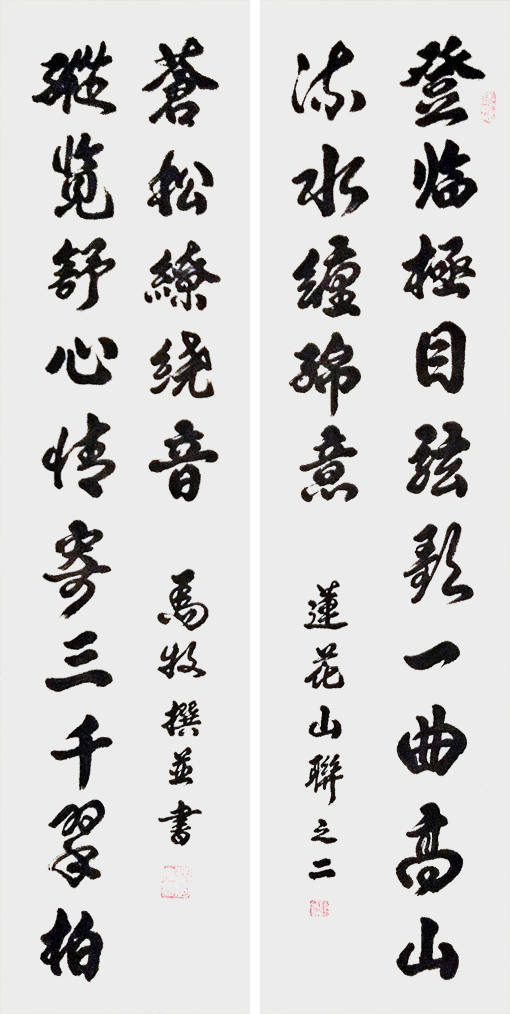 登临極目弦歌一曲高山
流水纏綿意
蓮花山聯之二
縱览舒心情寄三千翠柏
蒼松繚绕音
馬牧撰並書